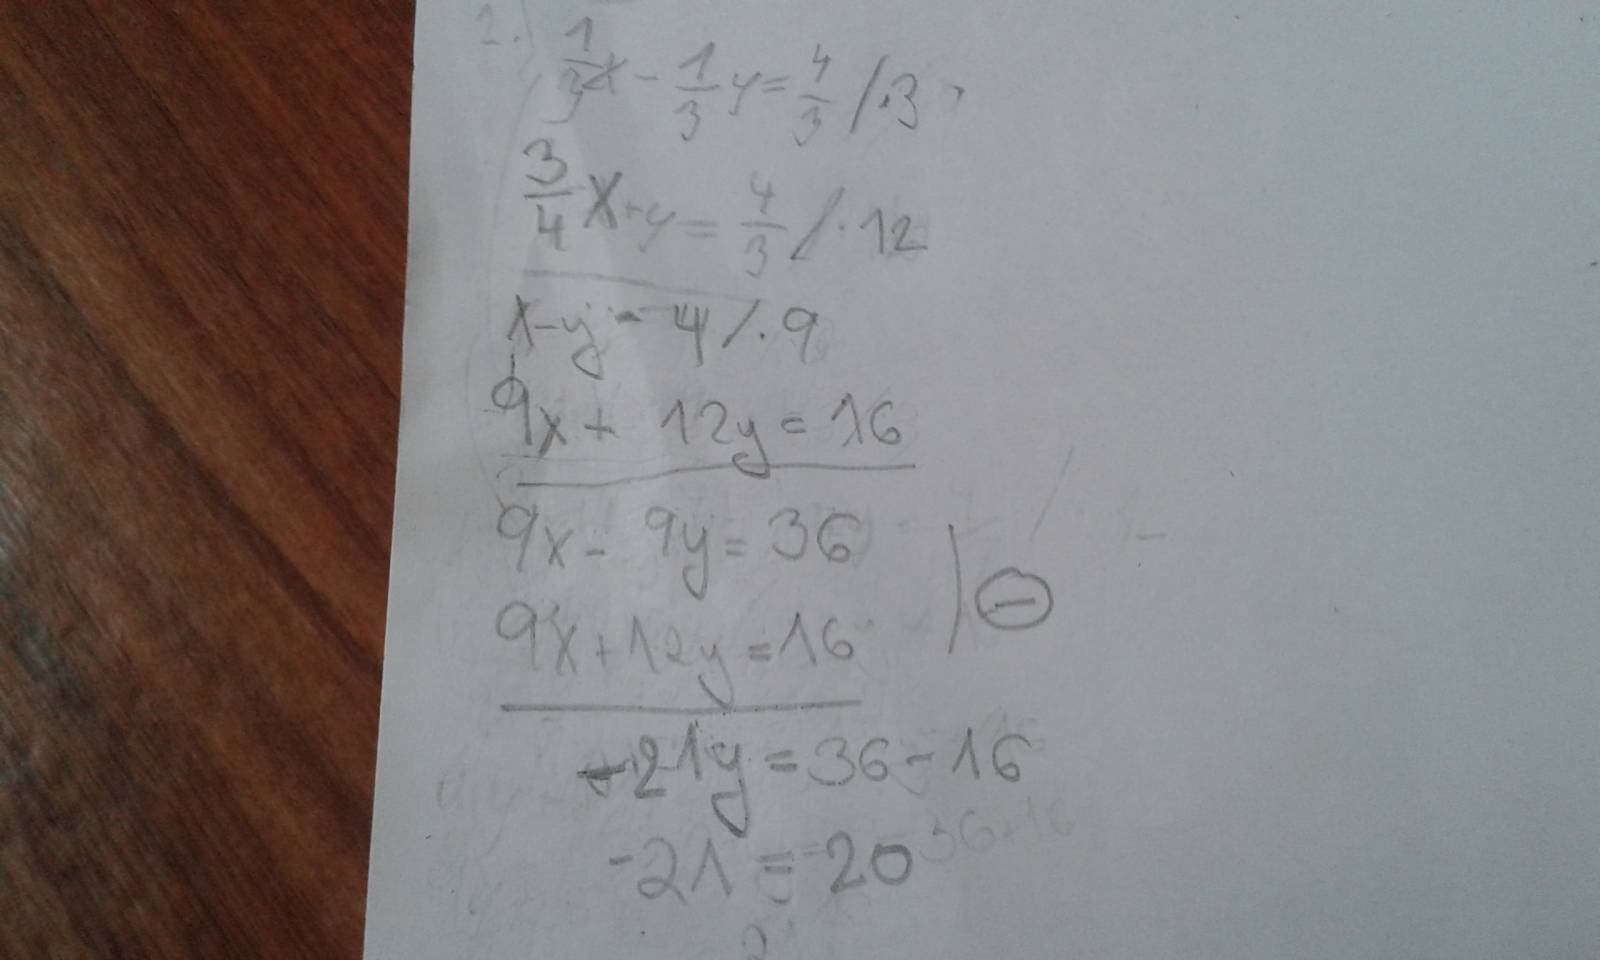 2.) 1/3 x - 1/3 y = 4/3 /.3
3/4 x + y = 4/3 /.12
x - y = 4 /.9
9x + 12y = 16
9x - 9y = 36
9x + 12y = 16
-21y = 36 - 16
-21 = 20